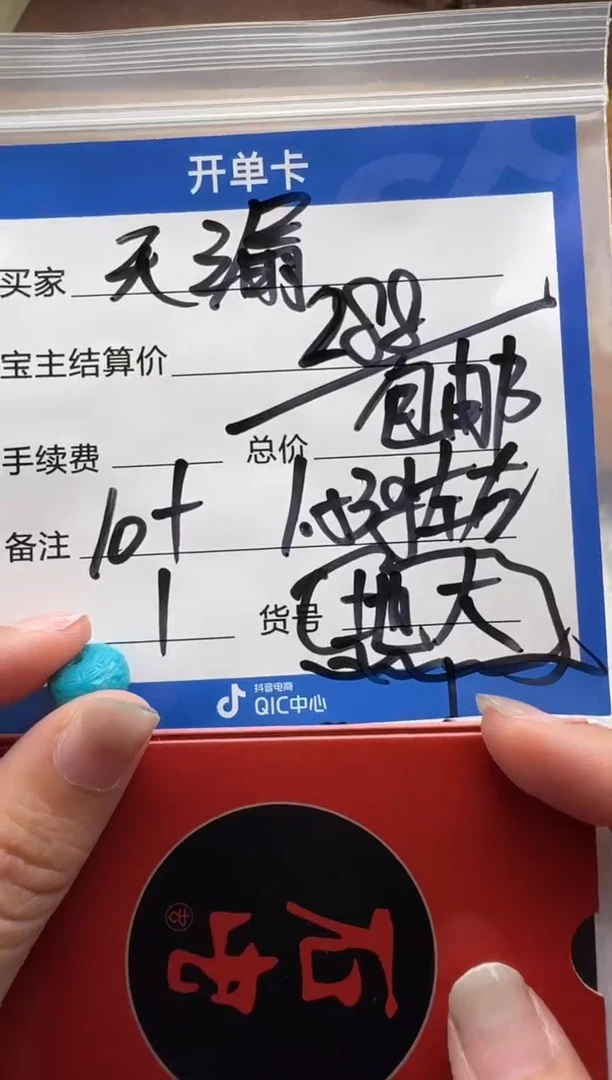 开单卡
买家 天漏
宝主结算价 288
包邮
手续费 总价
备注 10+ 1.03g左右
货号 地大
抖音电商
QIC中心